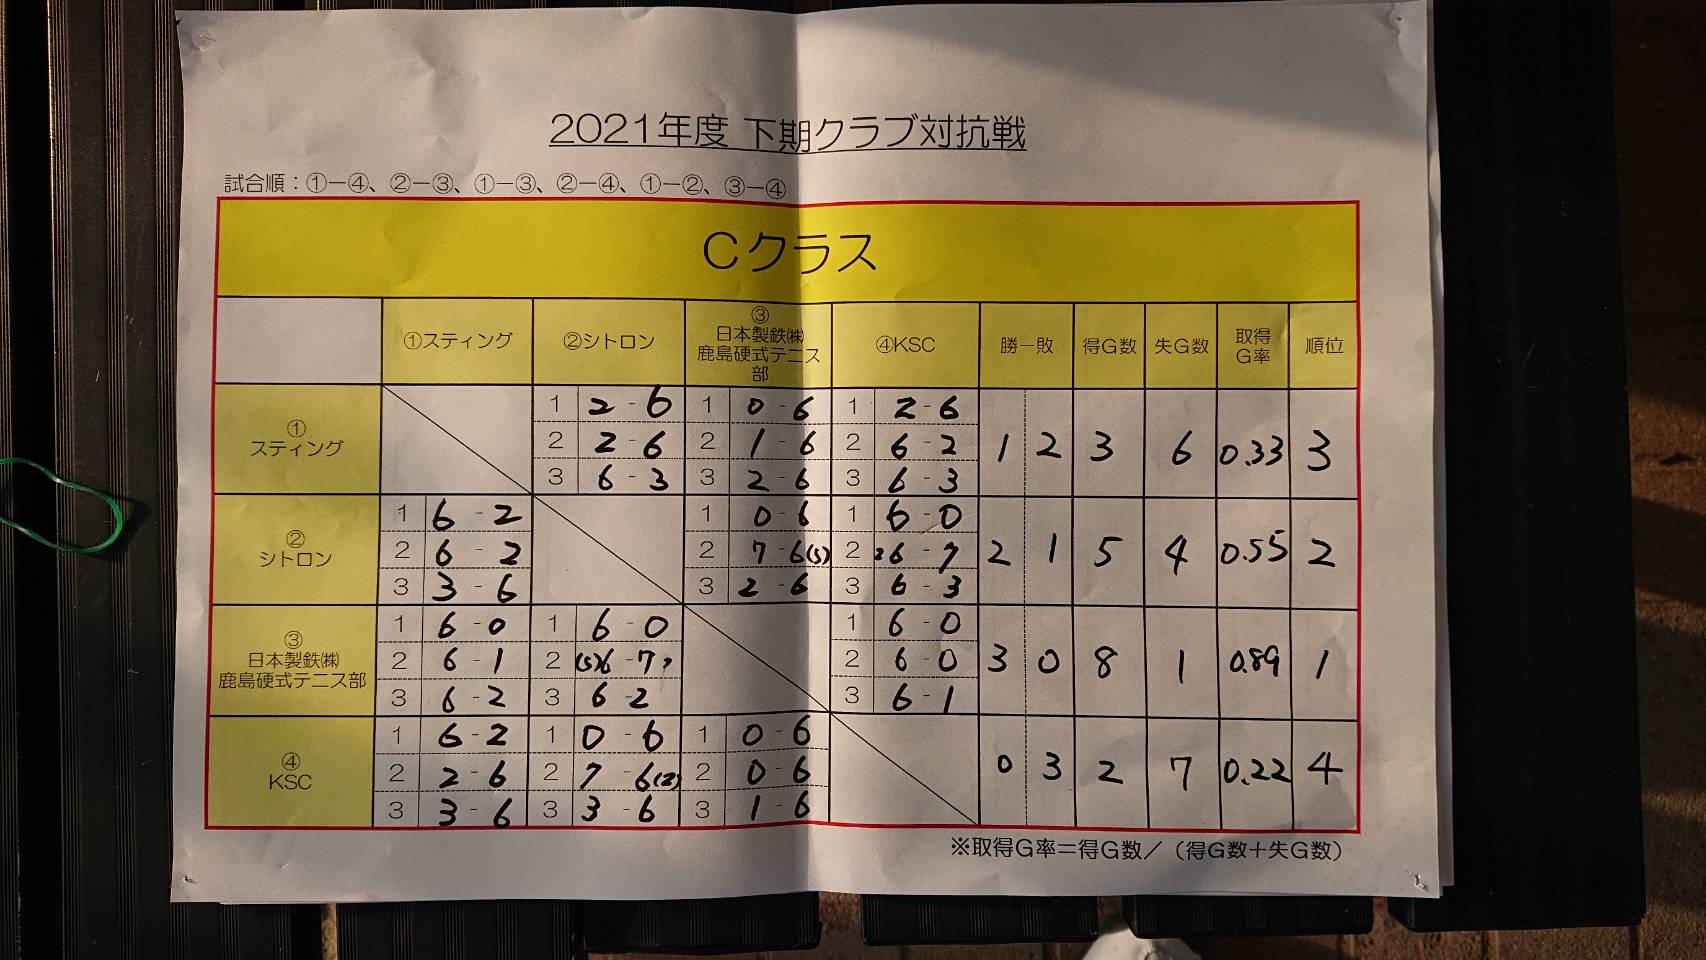 2021年度 下期クラブ対抗戦
試合順：①－④、②－③、①－③、②－④、①－②、③－④
Cクラス
①スティング ②シトロン ③日本製鉄㈱鹿島硬式テニス部 ④KSC 勝－敗 得G数 失G数 取得G率 順位
①スティング
1 2-6 1 0-6 1 2-6
2 2-6 2 1-6 2 6-2 1 2 3 6 0.33 3
3 6-3 3 2-6 3 6-3
②シトロン
1 6-2 1 0-6 1 6-0
2 6-2 2 7-6(5) 2 6-7 2 1 5 4 0.55 2
3 3-6 3 2-6 3 6-3
③日本製鉄㈱鹿島硬式テニス部
1 6-0 1 6-0 1 6-0
2 6-1 2 (5)6-7 2 6-0 3 0 8 1 0.89 1
3 6-2 3 6-2 3 6-1
④KSC
1 6-2 1 0-6 1 0-6
2 2-6 2 7-6(2) 2 0-6 0 3 2 7 0.22 4
3 3-6 3 3-6 3 1-6
※取得G率＝得G数／（得G数＋失G数）